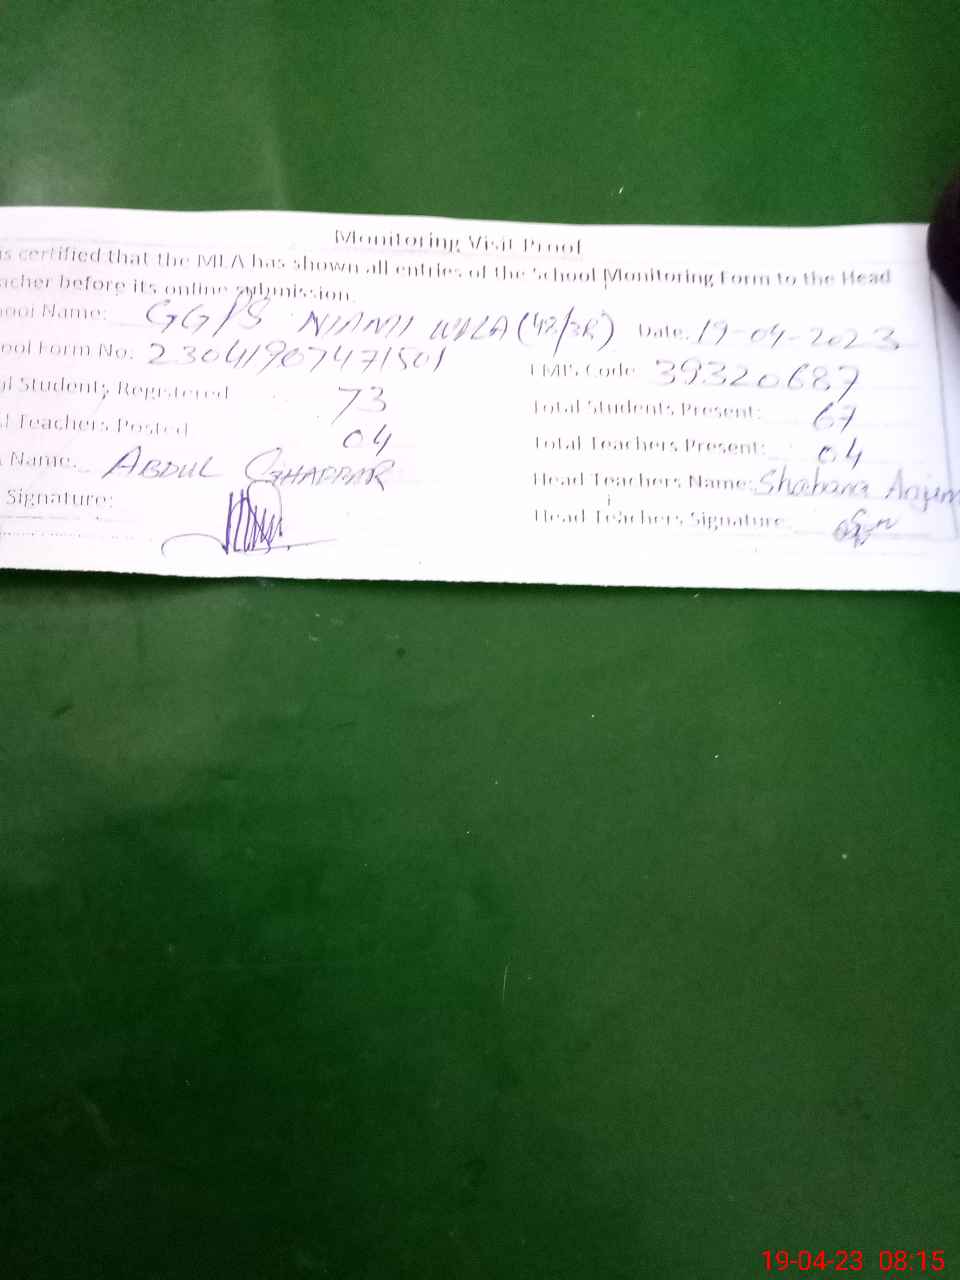 Monitoring Visit Proof
is certified that the MEA has shown all entries of the School Monitoring Form to the Head
acher before its online submission.
ool Name: GGPS NIAMI WALA (42/3R) Date: 19-04-2023
ool Form No. 23041907471501 EMIS Code 39320687
al Students Registered 73 Total Students Present: 67
l Teachers Posted 04 Total Teachers Present: 04
Name: ABDUL GHAFFAR Head Teachers Name: Shabana Anjum
Signature: Head Teachers Signature
19-04-23 08:15